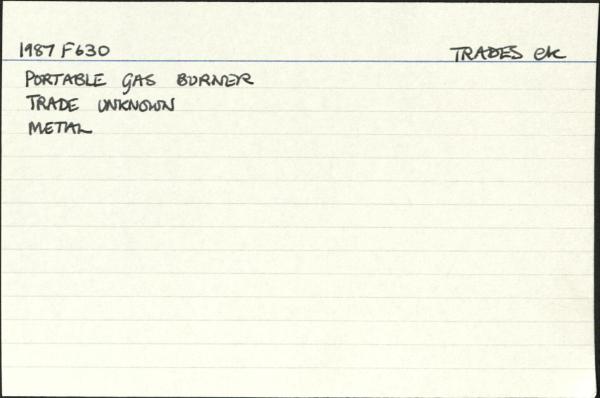 1987 F630 TRADES etc
PORTABLE GAS BURNER
TRADE UNKNOWN
METAL